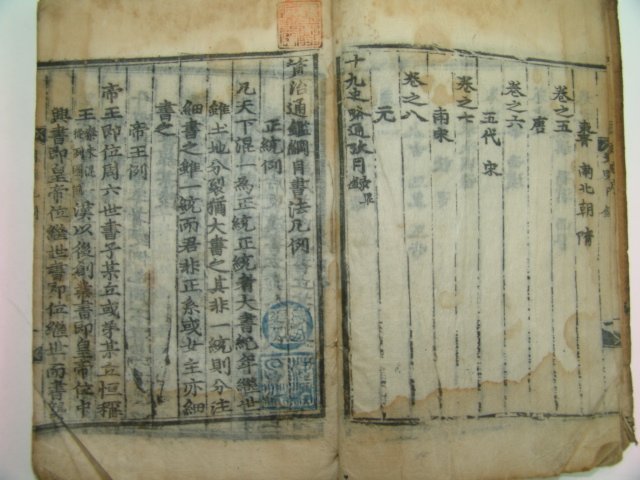 卷之五
晉 南北朝 隋
唐
卷之六
五代 宋
卷之七
南宋
卷之八
元
十九史略通攷目錄畢
資治通鑑綱目書法凡例
正統例
凡天下混一為正統正統者大書紀年繼世
雖土地分裂猶大書之其非一統則分注
細書之雖一統而君非正系或女主亦細
書之
帝王例
帝王即位周六世書子某立或弟某立恒稱
王 漢以後創業書即皇帝位中
興書即皇帝位繼世書即位繼世而書